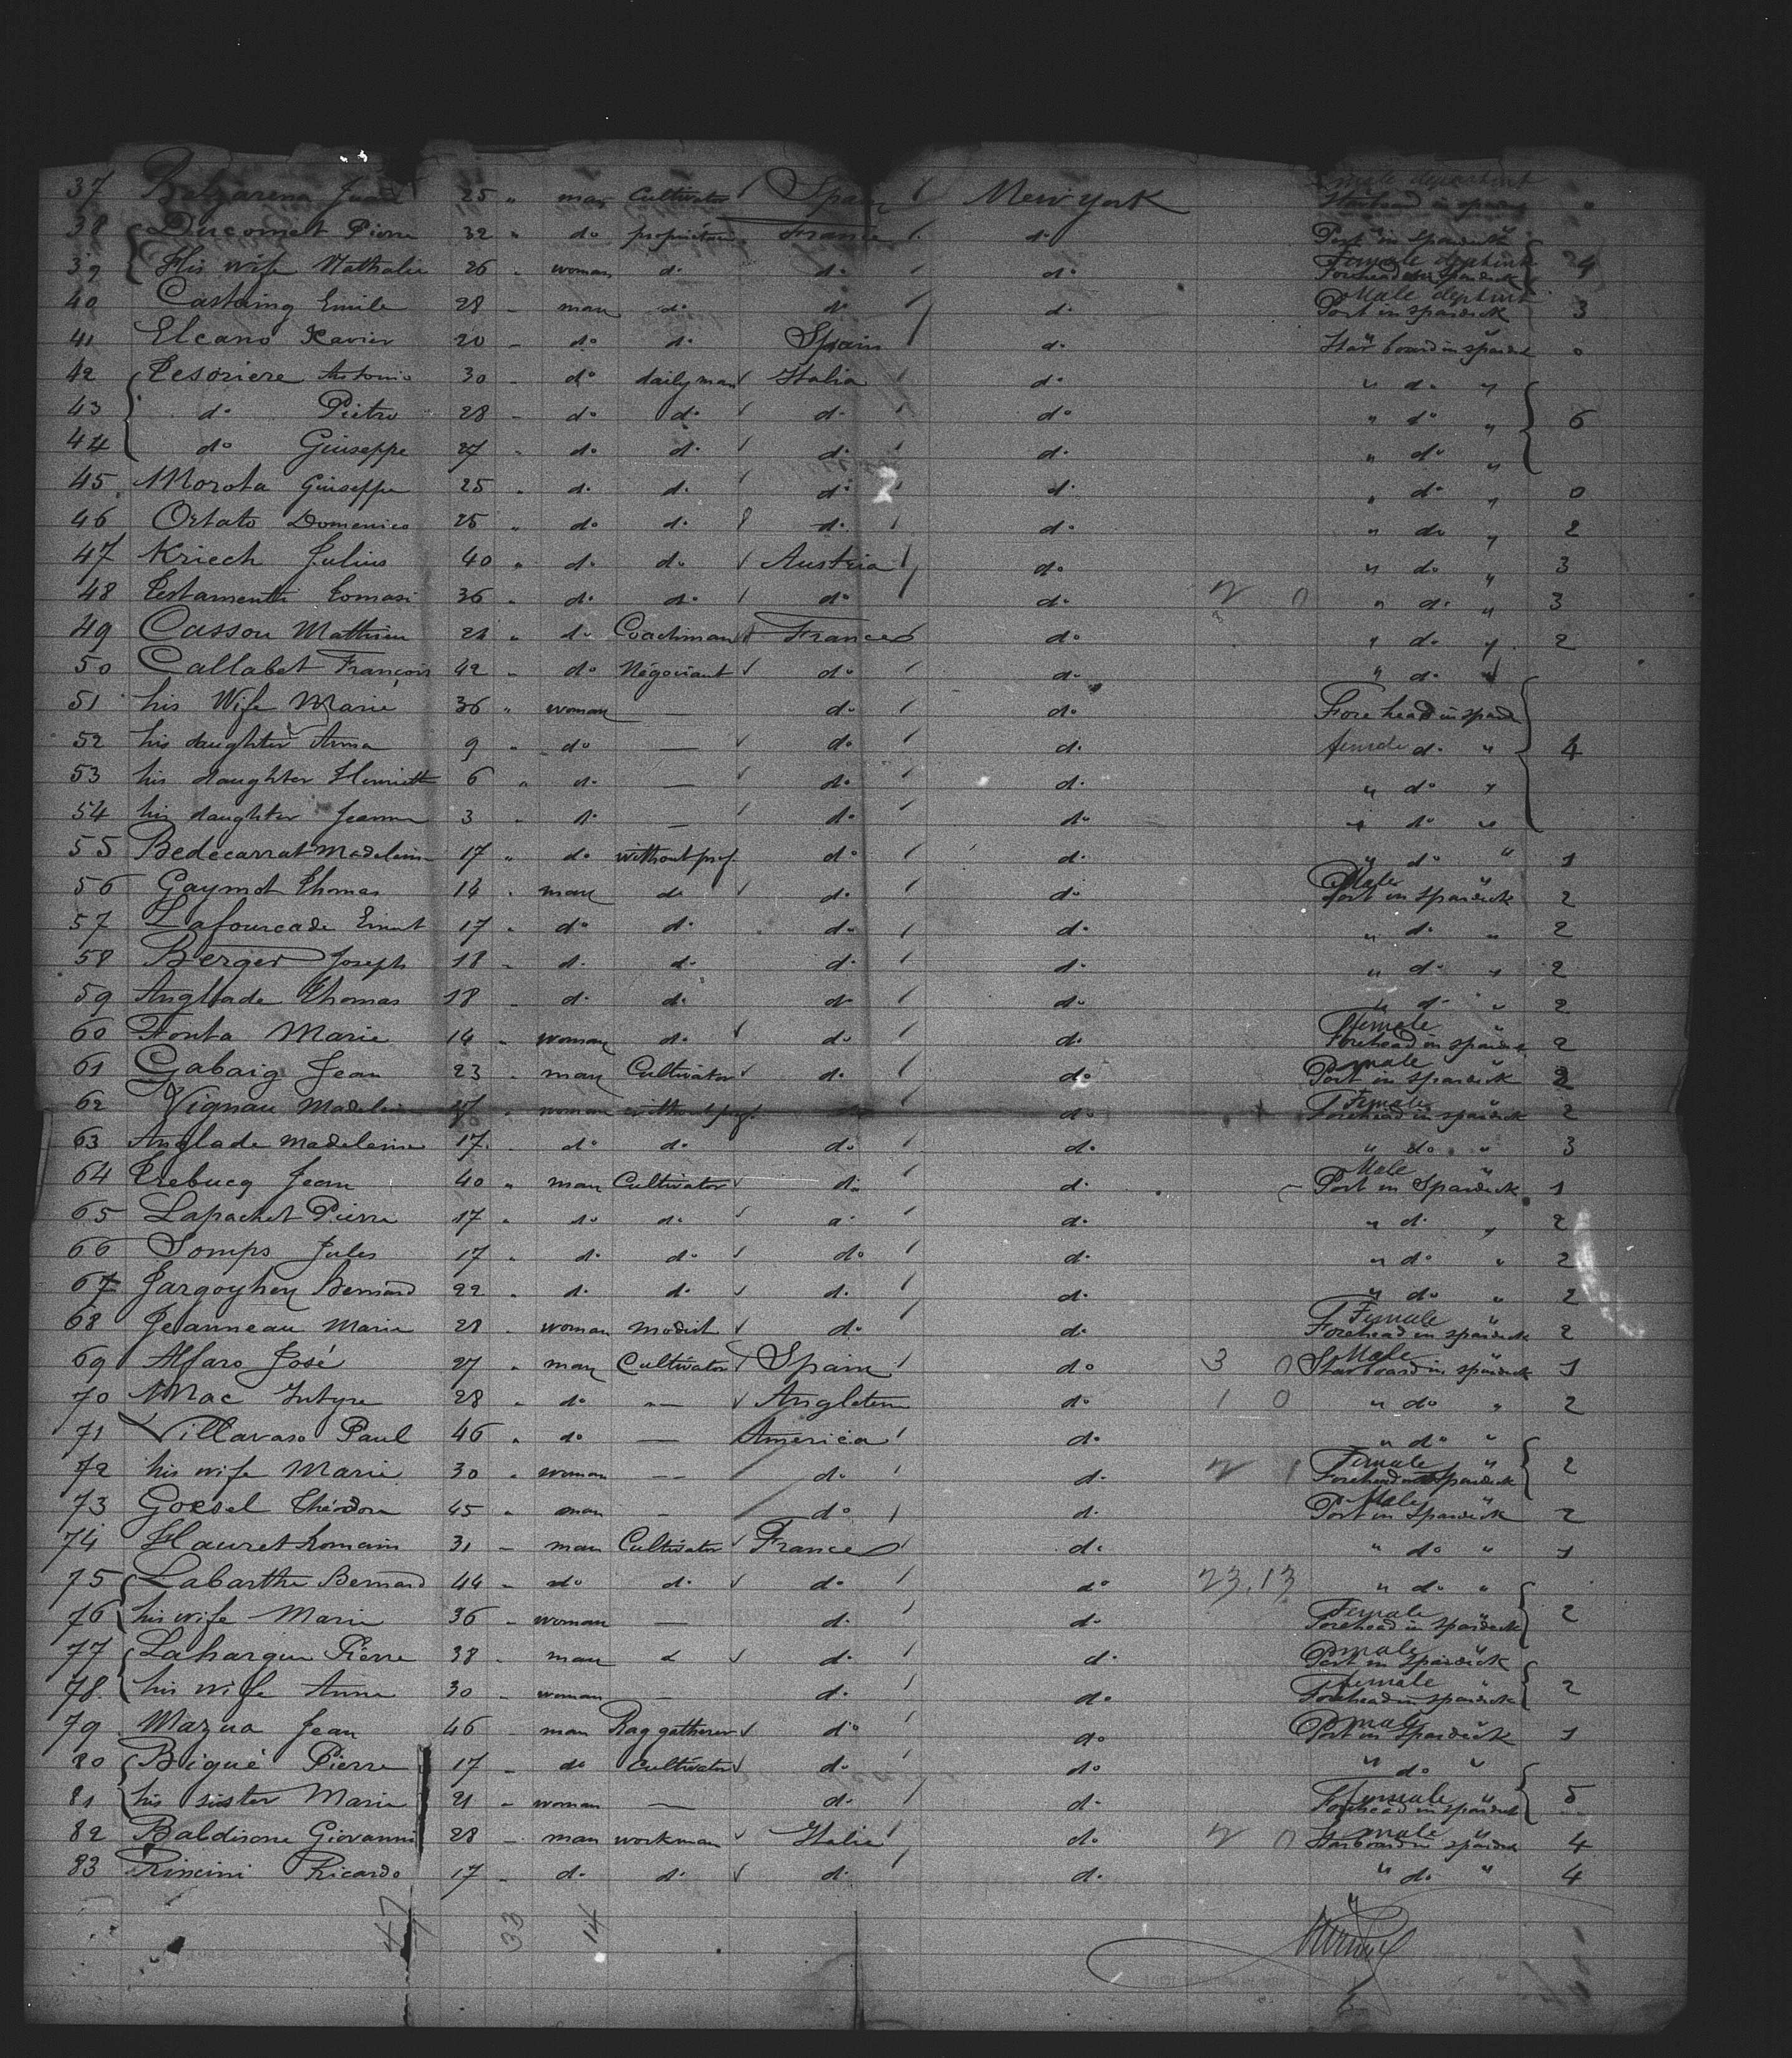 37 Belzarena Juan 25 " man Cultivator Spain New York Starboard in spardeck 0
38 Ducomet Pierre 32 " do propriétaire France do Port in spardeck
39 His wife Nathalie 26 - woman do do do Female Forehead in spardeck 4
40 Castaing Emile 28 - man do do do Male Port in spardeck 3
41 Elcano Xavier 20 - do do Spain do Starboard in spardeck 0
42 Tesoriere Antonio 30 - do daily man Italia do " do "
43 do Pietro 28 - do do do do " do " 6
44 do Giuseppe 27 - do do do do " do "
45 Morota Giuseppe 25 " do do do do " do " 0
46 Ortato Domenico 25 " do do do do " do " 2
47 Kriech Julius 40 " do do Austria do " do " 3
48 Testamenti Tomasi 36 - do do do do 2 0 " do " 3
49 Cassou Mathieu 21 " do Coachman France do " do " 2
50 Callabet François 42 - do Négociant do do " do "
51 his Wife Marie 36 " woman — do do Forehead in spard
52 his daughter Anna 9 " do — do do female do " 4
53 his daughter Henriette 6 " do — do do " do "
54 his daughter Jeanne 3 " do — do do " do "
55 Bedecarrat Madeleine 17 " do without prof. do do " do " 1
56 Gaymot Thomas 14 " man do do do Male Port in spardeck 2
57 Lafourcade Ernest 17 " do do do do " do " 2
58 Berger Joseph 18 - do do do do " do " 2
59 Anglade Thomas 18 - do do do do " do " 2
60 Fonta Marie 14 - woman do do do Female Forehead in spardeck 2
61 Gabaig Jean 23 - man Cultivator do do male Port in spardeck 2
62 Vignau Madeleine 17 " woman without prof. do do Female Forehead in spardeck 2
63 Anglade Madeleine 17 do do do do " do " 3
64 Trebucq Jean 40 " man Cultivator do do Male Port in Spardeck 1
65 Lapachet Pierre 17 " do do do do " do " 2
66 Somps Jules 17 " do do do do " do " 2
67 Jargoyhen Bernard 22 - do do do do " do " 2
68 Jeanneau Marie 28 - woman modist do do Female Forehead in spardeck 2
69 Alfaro José 27 " man Cultivator Spain do 3 0 Male Starboard in spardeck 1
70 Mac Intyre 28 " do — Angleterre do 1 0 " do " 2
71 Villavaso Paul 46 " do — America do " do "
72 his wife Marie 30 " woman — do do 2 1 Female Forehead in Spardeck 2
73 Goesel Théodore 45 " man - do do Male Port in Spardeck 2
74 Hauret Romain 31 - man Cultivator France do " do " 1
75 Labarthe Bernard 44 - do do do do 23.13 " do "
76 his wife Marie 36 - woman — do do Female Forehead in spardeck 2
77 Lahargue Pierre 38 - man do do do male Port in spardeck
78 his wife Anna 30 - woman - do do female Forehead in spardeck 2
79 Mazua Jean 46 - man Rag gatherer do do male Port in spardeck 1
80 Bigué Pierre 17 - do Cultivator do do " do "
81 his sister Marie 21 - woman — do do female Forehead in spardeck 5
82 Baldisone Giovanni 28 - man workman Italia do 2 0 male Starboard in spardeck 4
83 Rincini Ricardo 17 - do do do do " do " 4
47 33 14